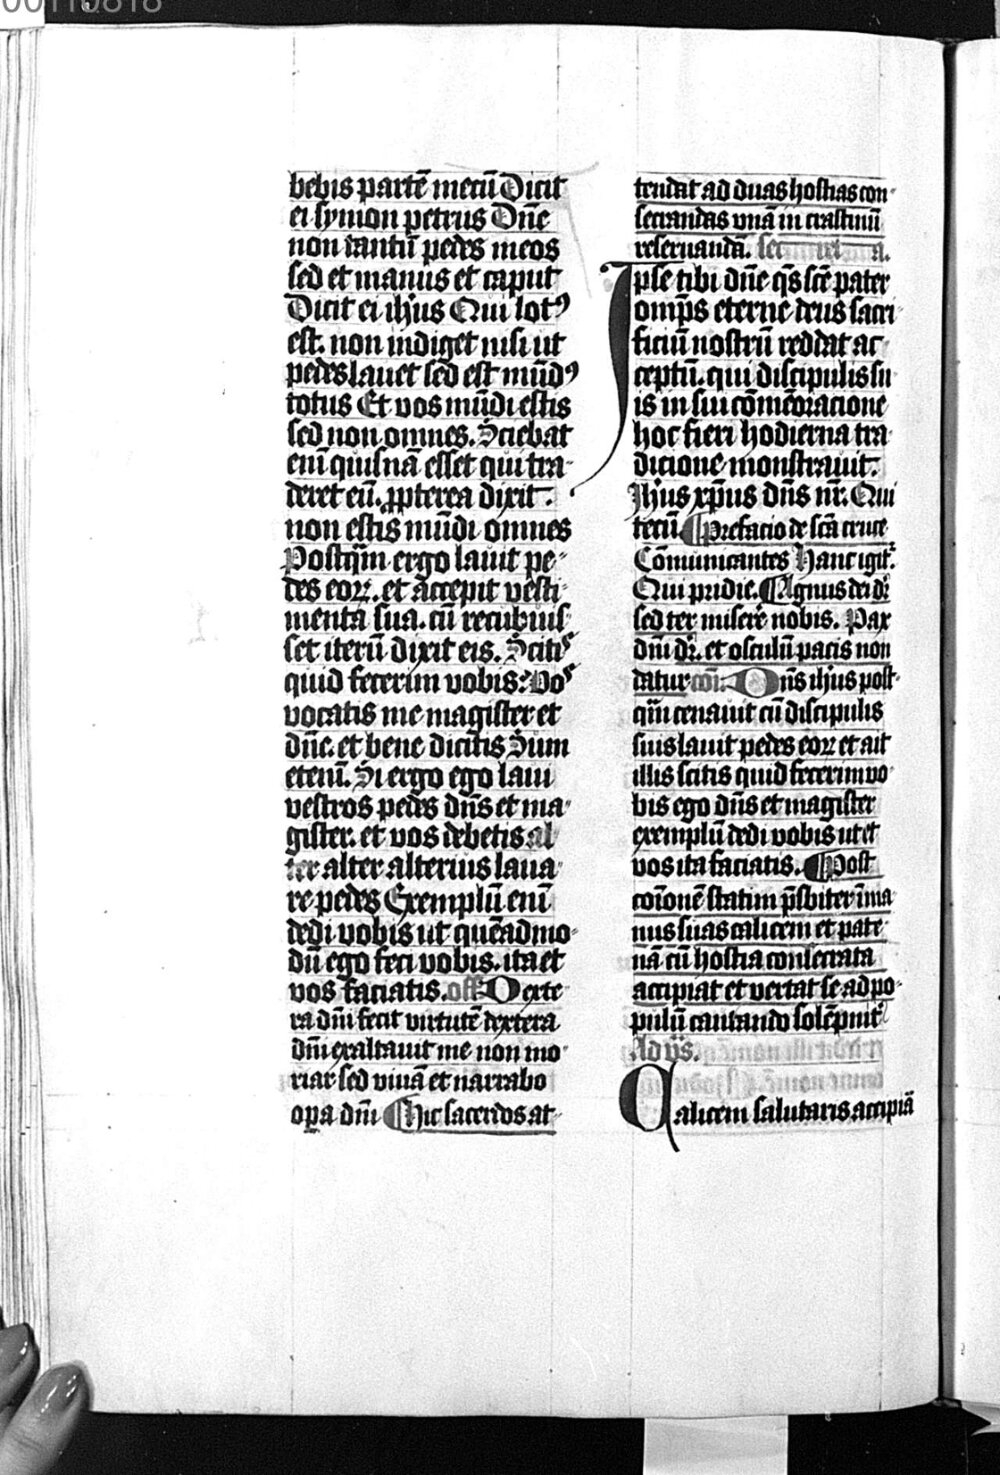 00110818
bebis partē mecū Dicit
ei symon petrus Dn̄e
non tantū pedes meos
sed et manus et caput
Dicit ei ih̄us Qui lotꝰ
est. non indiget nisi ut
pedes lauet sed est mūdꝰ
totus Et vos mūdi estis
sed non omnes. Sciebat
eni quisnā esset qui tra-
deret eū. ꝓpterea dixit.
non estis mūdi omnes
Postq̄m ergo lauit pe-
des eoꝝ. et accepit vesti-
menta sua. cū recubuis-
set iterū dixit eis. Scitis
quid fecerim vobis: Vos
vocatis me magister et
dn̄e. et bene dicitis Sum
etenī. Si ergo ego laui
vestros pedes dn̄s et ma-
gister. et vos debetis al
ter alter alterius laua-
re pedes Exemplū enī
dedi vobis ut quēadmo-
dū ego feci vobis. ita et
vos faciatis. off Dexte-
ra dn̄i fecit virtutē dextera
dn̄i exaltauit me non mo-
riar sed viuā et narrabo
opa dn̄i Hic sacerdos at-
tendat ad duas hostias con-
secrandas vnā in crastinū
reseruandā.
Ipse tibi dn̄e q̄s sc̄e pater
omp̄s eterne deus sacri-
ficiū nostrū reddat ac-
ceptū. qui discipulis su-
is in sui cōmēoracione
hoc fieri hodierna tra-
dicione monstrauit.
Ih̄us xp̄us dn̄s nr̄. Qui
tecū. Prefacio de sc̄a cruce
Cōmunicantes Hanc igit̄.
Qui pridie. Agnus dei dr̄
sed ter miserē nobis. Pax
dn̄i dr̄. et osculū pacis non
datur cōi. Dn̄s ih̄us post-
qm̄ cenauit cū discipulis
suis lauit pedes eoꝝ et ait
illis scitis quid fecerim vo-
bis ego dn̄s et magister
exemplū dedi vobis ut et
vos ita faciatis. Post
cōionē statim p̄sbiter ī ma-
nus suas calicem et pate-
nā cū hostia consecrata
accipiat et vertat se ad po-
pulū cantando solēpnit̄
Ad v̄s.
Calicem salutaris accipiā